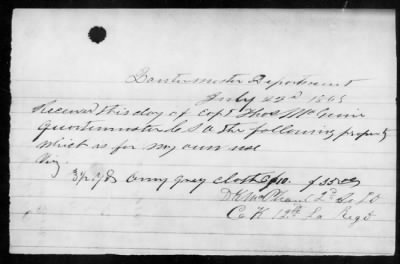 Quartermaster Department
July 22d 1863
Received this day of Capt Thos McGuire
Quartermaster C S A the following property
which is for my own use
Viz
3½ yds Army grey cloth @10. $35.00
2d Lt
Co K 12th La Regt